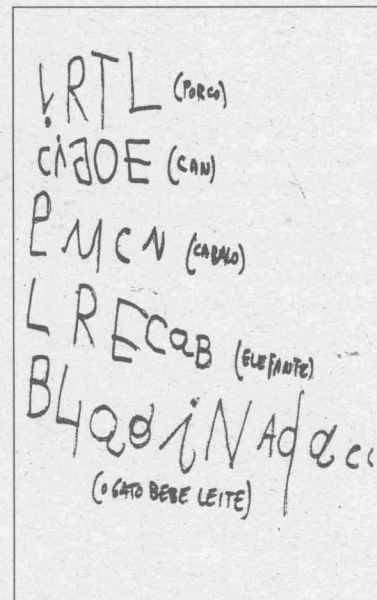 iRTL (PORCO)
ciaOE (CAN)
PMCN (CABALO)
LRECaB (ELEFANTE)
(O GATO BEBE LEITE)